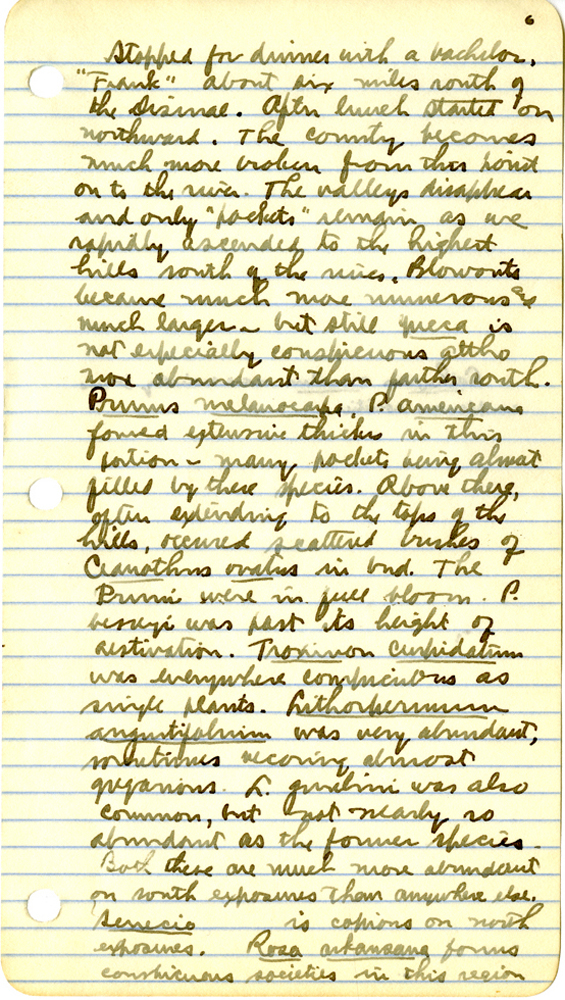 6
Stopped for dinner with a bachelor,
"Frank" about six miles south of
the Dismal. After lunch started on
northward. The country becomes
much more broken from this point
on to the river. The valleys disappear
and only "pockets" remain as we
rapidly ascended to the highest
hills south of the river. Blowouts
became much more numerous &
much larger - but still yucca is
not especially conspicuous altho
more abundant than farther south.
Prunus melanocarpa, P. americana
formed extensive thickets in this
portion - many pockets being almost
filled by these species. Above these,
often extending to the tops of the
hills, occured scattered bushes of
Ceanothus ovatus in bud. The
Pruni were in full bloom. P.
besseyi was past its height of
aestivation. Troximon cuspidatum
was everywhere conspicuous as
single plants. Lithospermum
angustifolium was very abundant,
sometimes becoming almost
gregarious. L. gmelini was also
common, but not nearly so
abundant as the former species.
Both these are much more abundant
on south exposures than anywhere else.
Senecio is copious on north
exposures. Rosa arkansana forms
conspicuous societies in this region